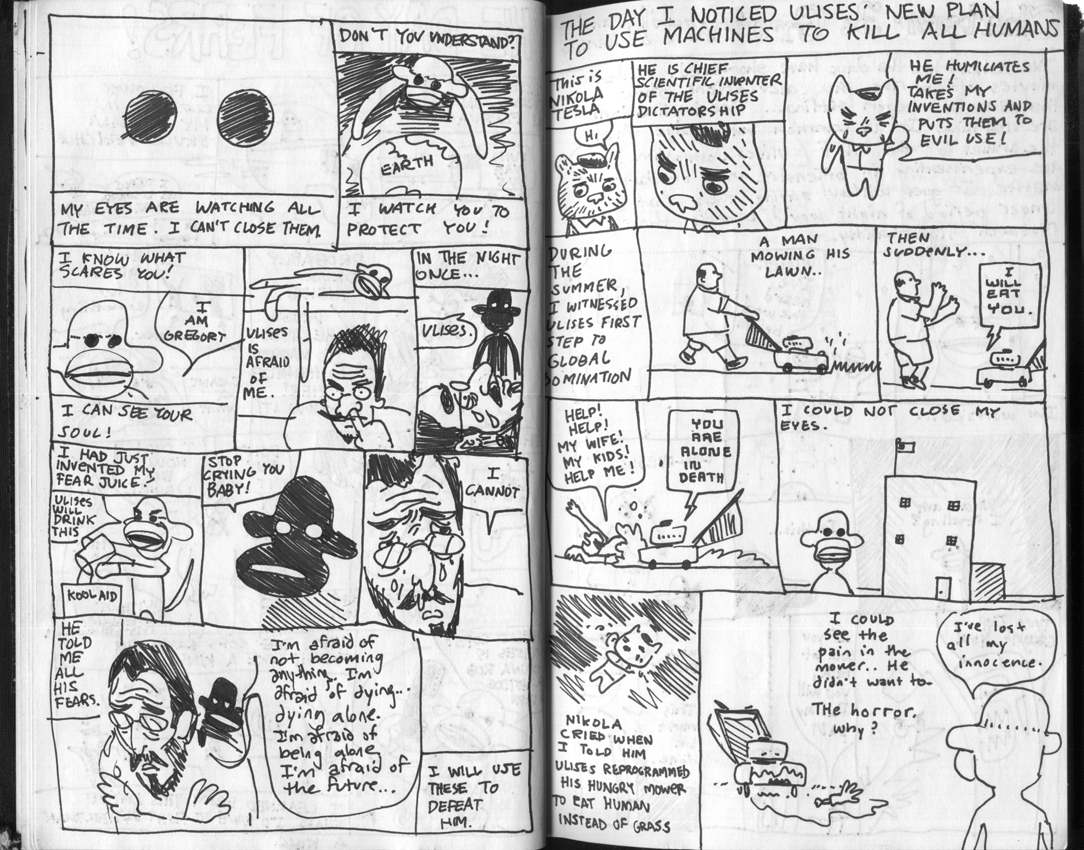 DON'T YOU UNDERSTAND?
EARTH
MY EYES ARE WATCHING ALL
THE TIME. I CAN'T CLOSE THEM.
I WATCH YOU TO
PROTECT YOU!
I KNOW WHAT
SCARES YOU!
I
AM
GREGORY
I CAN SEE YOUR
SOUL!
ULISES
IS
AFRAID
OF
ME.
IN THE NIGHT
ONCE...
ULISES.
I HAD JUST
INVENTED MY
FEAR JUICE.
ULISES
WILL
DRINK
THIS
KOOL AID
STOP
CRYING YOU
BABY!
I
CANNOT
HE
TOLD
ME
ALL
HIS
FEARS.
I'm afraid of
not becoming
anything. I'm
afraid of dying...
dying alone.
I'm afraid of
being alone.
I'm afraid of
the future...
I WILL USE
THESE TO
DEFEAT
HIM.
THE DAY I NOTICED ULISES' NEW PLAN
TO USE MACHINES TO KILL ALL HUMANS
This is
NIKOLA
TESLA
Hi
HE IS CHIEF
SCIENTIFIC INVENTER
OF THE ULISES
DICTATORSHIP
HE HUMILIATES
ME!
TAKES MY
INVENTIONS AND
PUTS THEM TO
EVIL USE!
DURING
THE
SUMMER,
I WITNESSED
ULISES FIRST
STEP TO
GLOBAL
DOMINATION
A MAN
MOWING HIS
LAWN..
THEN
SUDDENLY...
I
WILL
EAT
YOU.
HELP!
HELP!
MY WIFE!
MY KIDS!
HELP ME!
YOU
ARE
ALONE
IN
DEATH
I COULD NOT CLOSE MY
EYES.
NIKOLA
CRIED WHEN
I TOLD HIM
ULISES REPROGRAMMED
HIS HUNGRY MOWER
TO EAT HUMAN
INSTEAD OF GRASS
I could
see the
pain in the
mower.. He
didn't want to.
The horror.
why?
I've lost
all my
innocence.